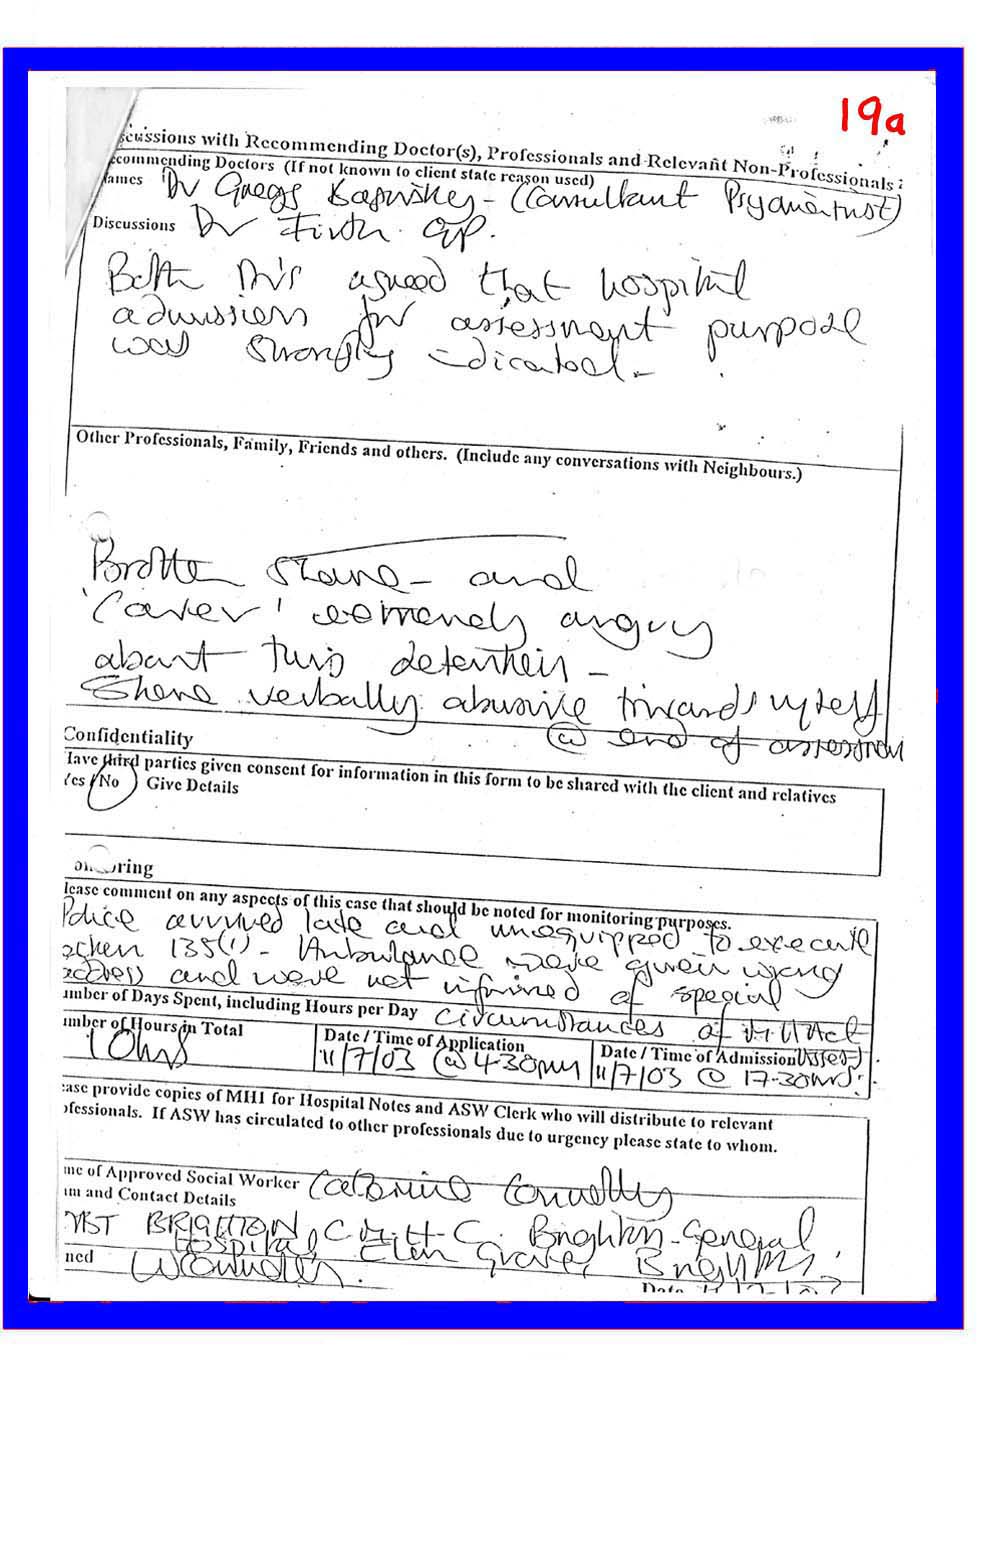 19a
scussions with Recommending Doctor(s), Professionals and Relevant Non-Professionals
ecommending Doctors (If not known to client state reason used)
ames Dr (Consultant Psychiatrist)
Discussions Dr Firth GP.
Both Dr's agreed that hospital
admission for assessment purpose
was strongly indicated.
Other Professionals, Family, Friends and others. (Include any conversations with Neighbours.)
Brother Shane - and
'Carer' extremely angry
about this detention -
Shane verbally abusive towards myself
@ end of assessment
Confidentiality
Have third parties given consent for information in this form to be shared with the client and relatives
Yes/No Give Details
oring
lease comment on any aspects of this case that should be noted for monitoring purposes.
Police arrived late and unequipped to execute
135(1) - Ambulance were given wrong
address and were not informed of special
umber of Days Spent, including Hours per Day circumstances of M.H Act
umber of Hours in Total
10hrs
Date / Time of Application
11/7/03 @ 4.30pm
Date / Time of Admission
11/7/03 @ 17.30hrs.
ease provide copies of MH1 for Hospital Notes and ASW Clerk who will distribute to relevant
ofessionals. If ASW has circulated to other professionals due to urgency please state to whom.
me of Approved Social Worker Catherine Connelly
am and Contact Details
BRIGHTON C.M.H.C. Brighton General
Hospital, Elm Grove, Brighton
ned
Date